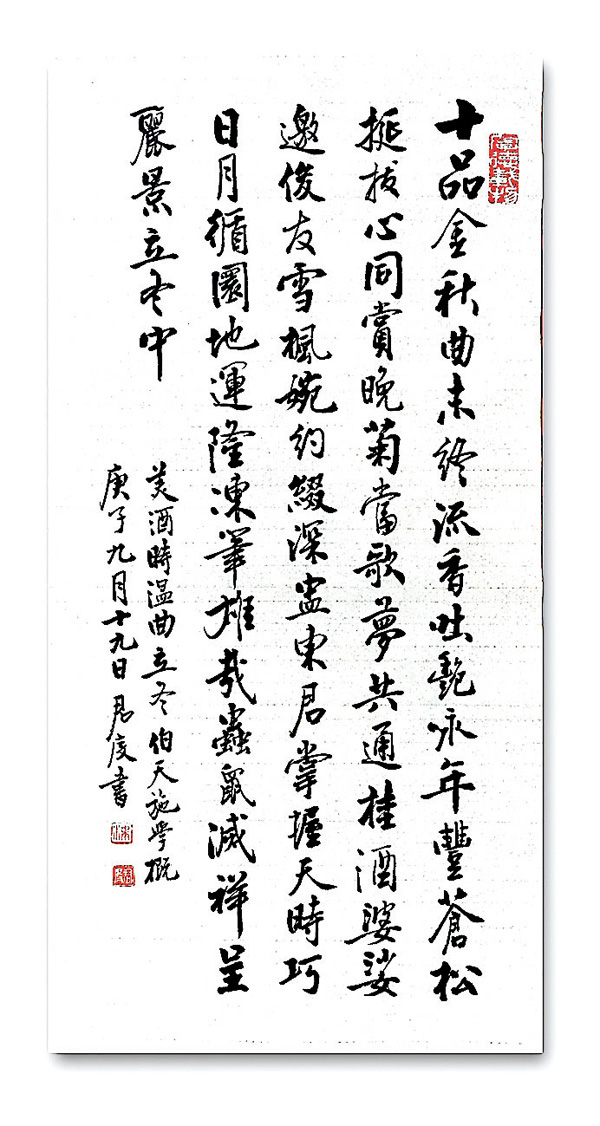 十品金秋曲未終流香吐艷咏年豐蒼松
挺拔心同賞晚菊當歌夢共通桂酒婆娑
邀俊友雪楓婉約綴深盅東君掌握天時巧
日月循圜地運隆凍筆雄哉蟲鼠滅祥呈
麗景立冬中
美酒時温曲立冬伯天施學概
庚子九月十九日君度書